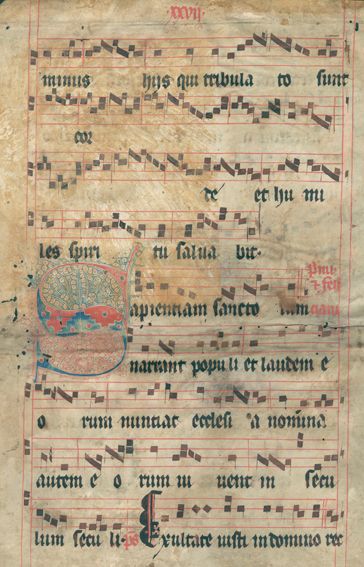 xxvij.
minus hijs qui tribula to sunt
cor
de et hu mi
les spiri tu salua bit.
Sapientiam sancto rum
narrant popu li et laudem e
o rum nunciat ecclesi a nomina
autem e o rum ui uent in secu
lum secu li. ps Exultate iusti in domino rec